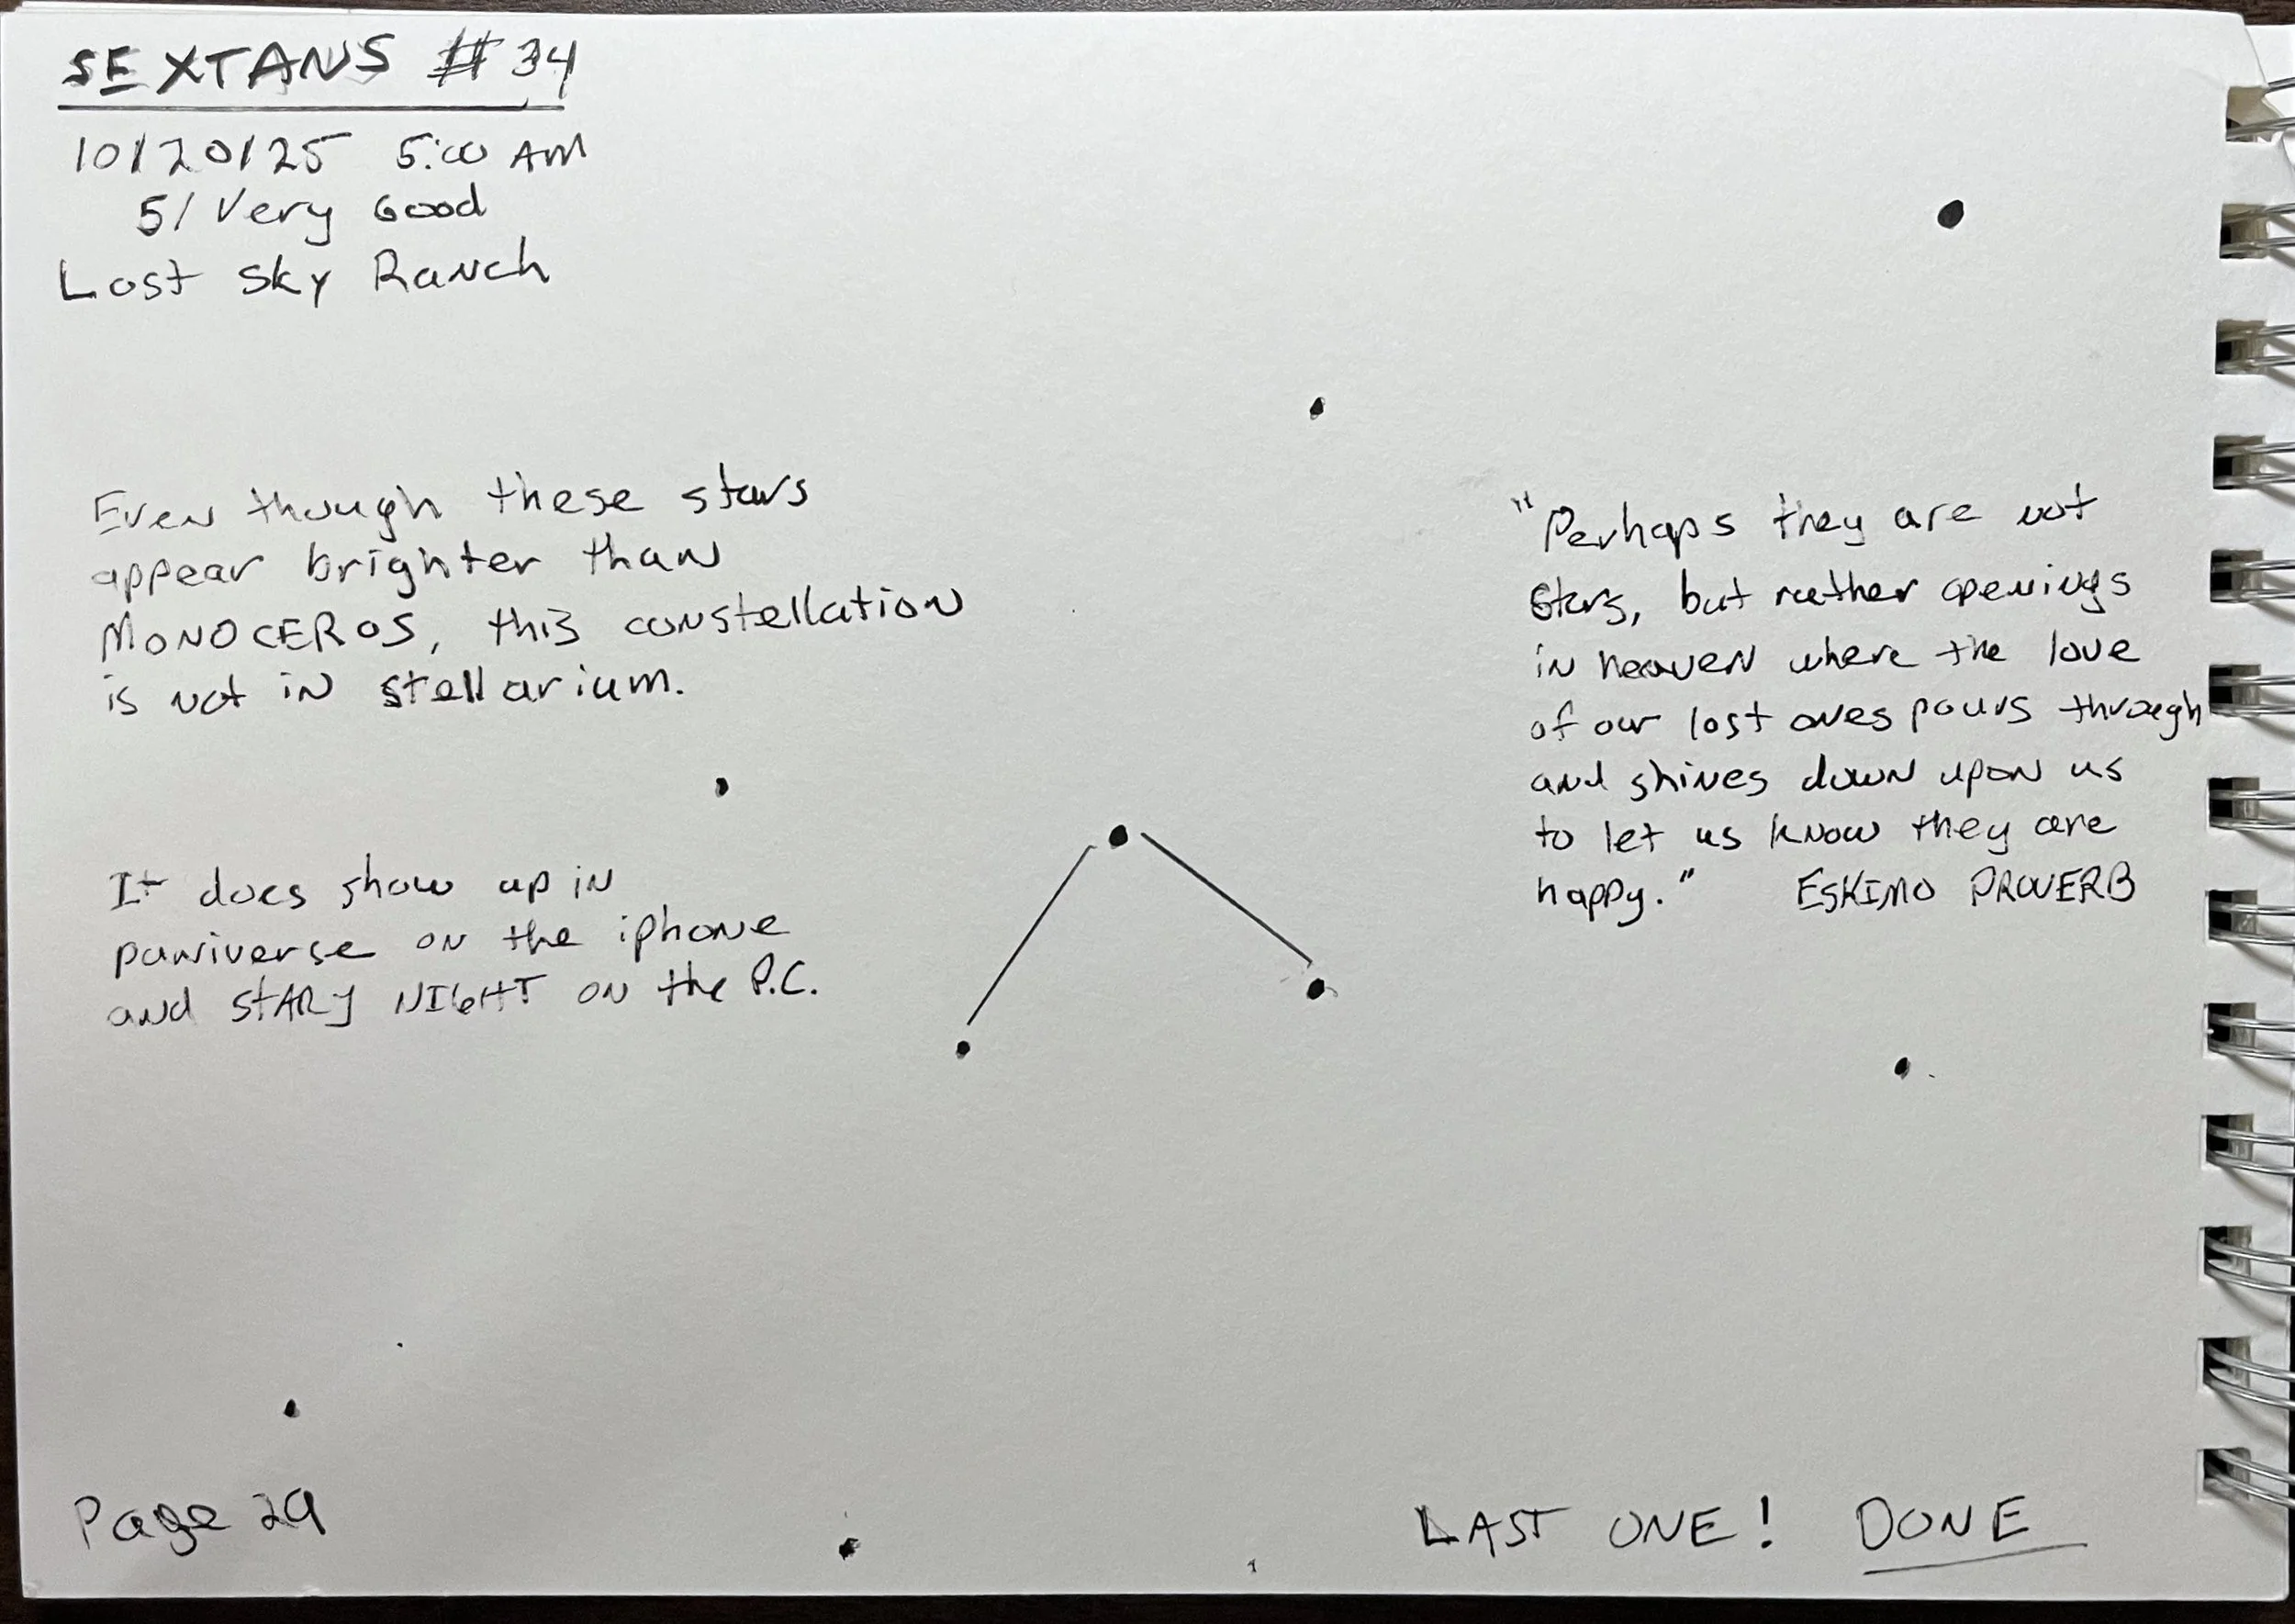 SEXTANS #34
10/20/25 5:00 AM
5/Very Good
Lost Sky Ranch
Even though these stars
appear brighter than
MONOCEROS, this constellation
is not in stellarium.
It does show up in
puniverse on the iphone
and STARY NIGHT ON the P.C.
"Perhaps they are not
Stars, but rather openings
in heaven where the love
of our lost ones pours through
and shines down upon us
to let us know they are
happy." ESKIMO PROVERB
Page 29
LAST ONE! DONE